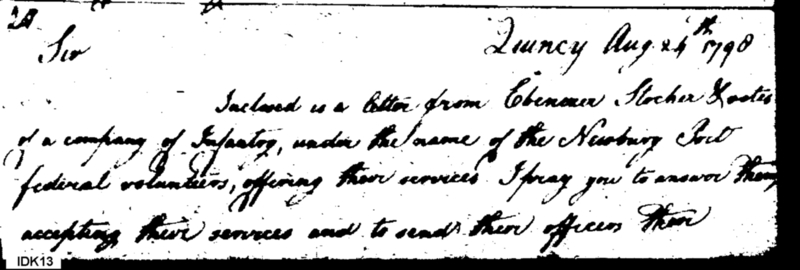 Sir
Quincy Aug. 24th 1798
Inclosed is a letter from Ebenezer Stocker &
of a company of Infantry, under the name of the Newbury Port
federal volunteers, offering their services I pray you to answer them
accepting their services and to send their officers their
IDK13